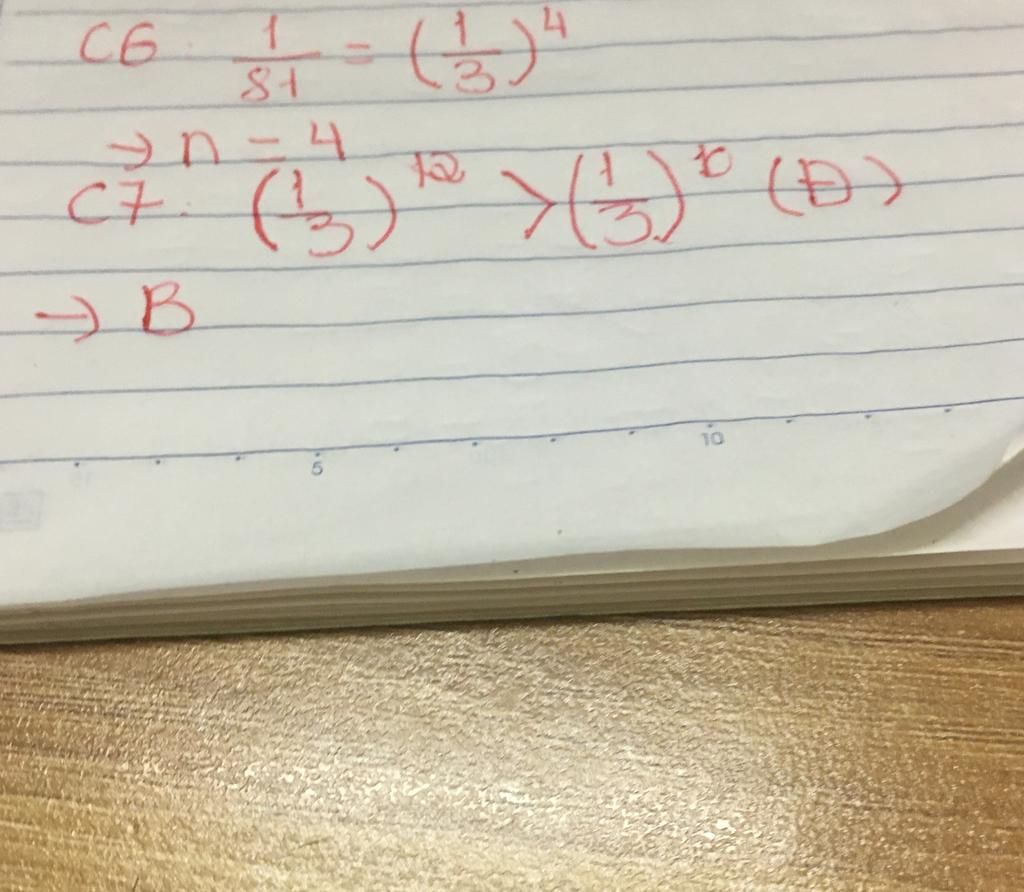 C6. 1/81 = (1/3)^4
→ n = 4
C7. (1/3)^12 > (1/3)^10 (Đ)
→ B
5 10